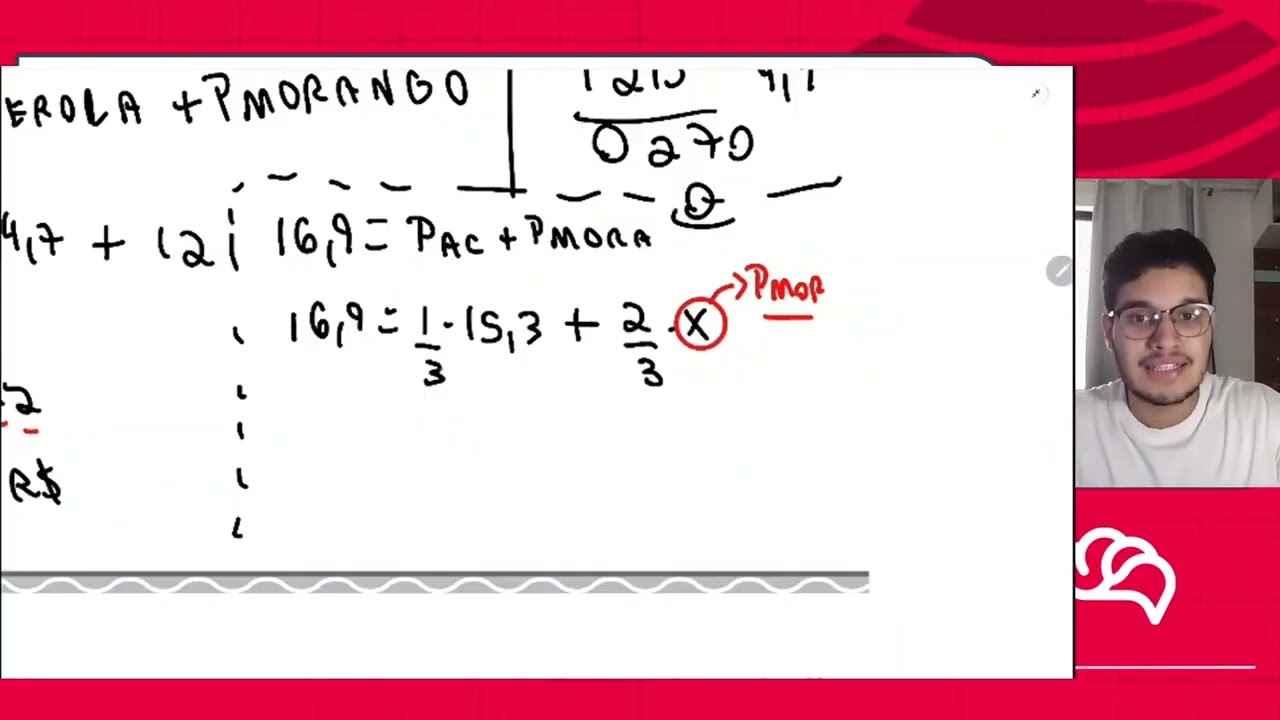 EROLA + PMORANGO
0270
0
4,7 + 12
16,9 = PAC + PMORA
16,9 = 1/3 · 15,3 + 2/3 · X → PMOR
2
R$